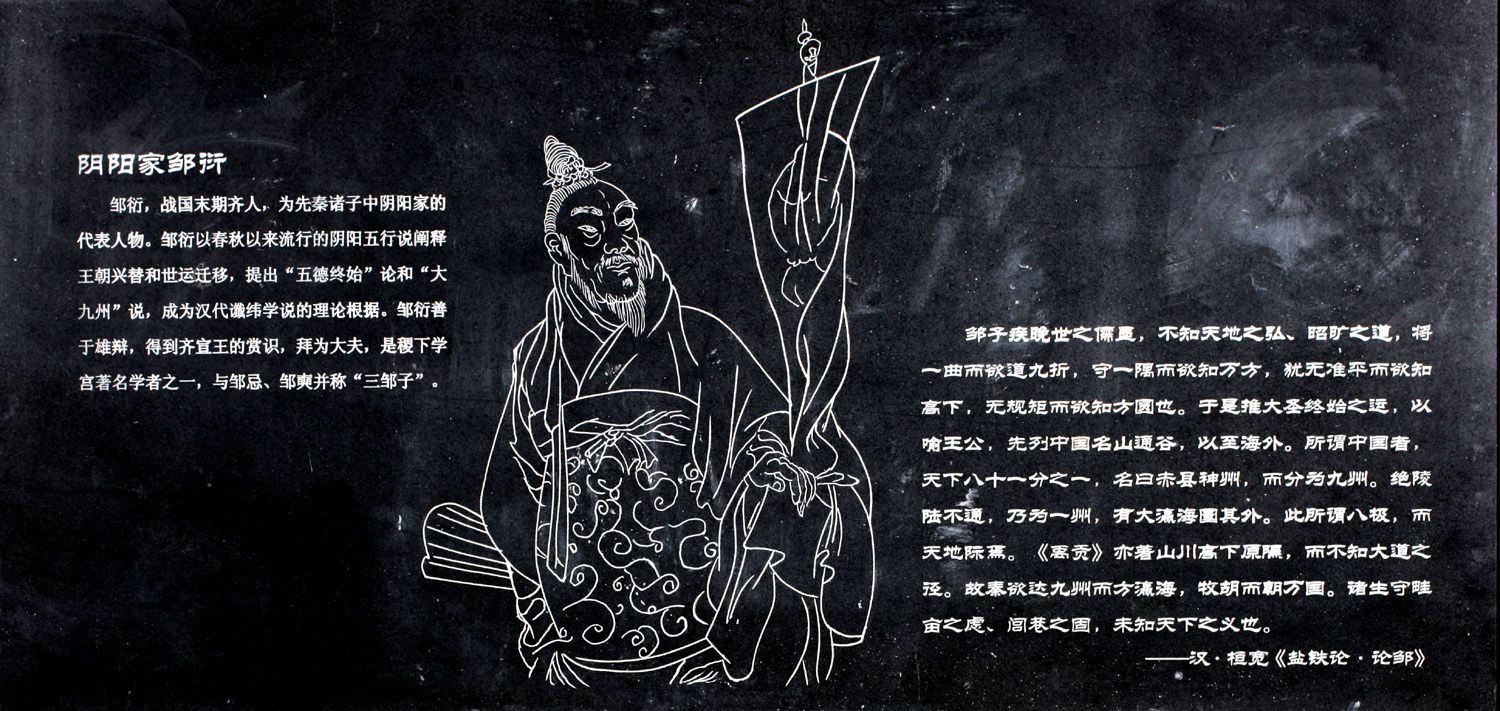 阴阳家邹衍
邹衍，战国末期齐人，为先秦诸子中阴阳家的
代表人物。邹衍以春秋以来流行的阴阳五行说阐释
王朝兴替和世运迁移，提出“五德终始”论和“大
九州”说，成为汉代谶纬学说的理论根据。邹衍善
于雄辩，得到齐宣王的赏识，拜为大夫，是稷下学
宫著名学者之一，与邹忌、邹奭并称“三邹子”。
邹子疾晚世之儒墨，不知天地之弘、昭旷之道，将
一曲而欲道九折，守一隅而欲知万方，犹无准平而欲知
高下，无规矩而欲知方圆也。于是推大圣终始之运，以
喻王公，先列中国名山通谷，以至海外。所谓中国者，
天下八十一分之一，名曰赤县神州，而分为九州。绝陵
陆不通，乃为一州，有大瀛海圜其外。此所谓八极，而
天地际焉。《禹贡》亦著山川高下原隰，而不知大道之
径。故秦欲达九州而方瀛海，牧胡而朝万国。诸生守畦
亩之虑、闾巷之固，未知天下之义也。
——汉·桓宽《盐铁论·论邹》